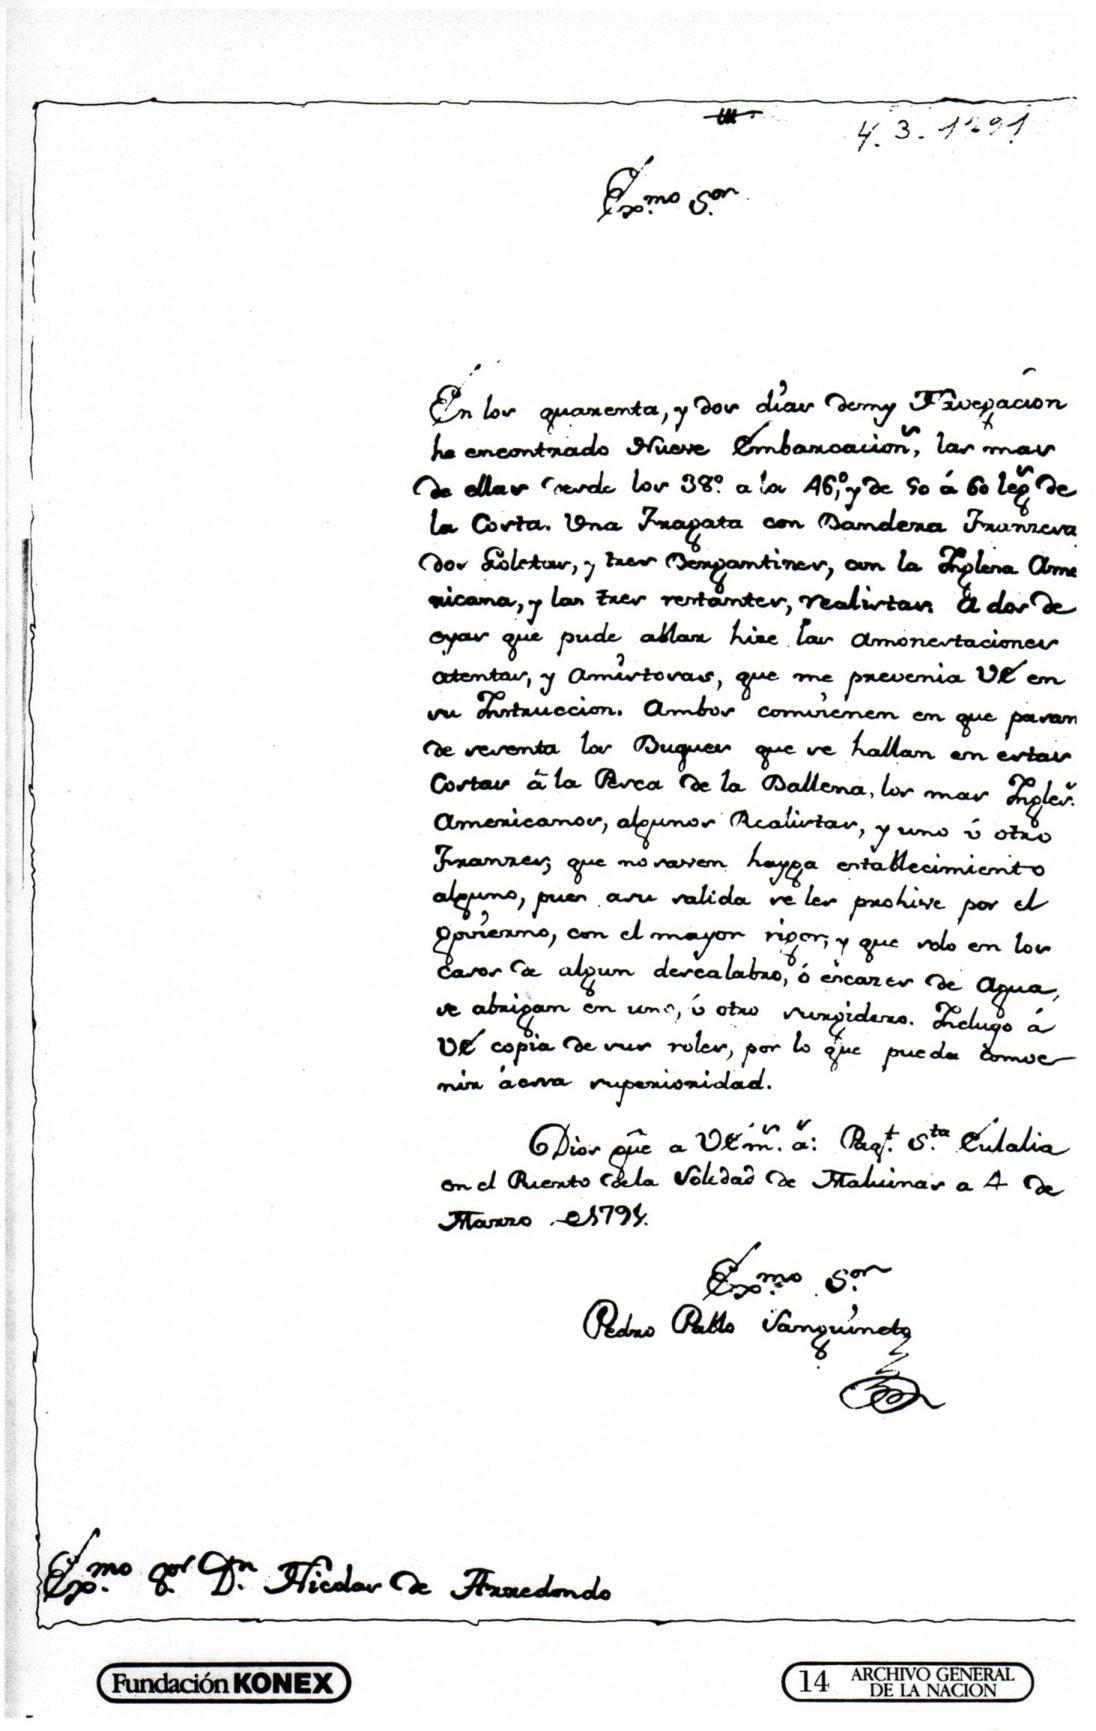 4.3.1791
Exmo Sor
En los quarenta, y dos dias demy Navegacion
he encontrado Nueve Embarcaciones, las mas
de ellas desde los 38º a los 46º, y de 50 á 60 legs de
la Costa. Una Fragata con Bandera Franzesa
dos Goletas, y tres Bergantines, con la Inglesa Ame
ricana, y las tres restantes, realistas. A dos de
eyas que pude ablar hize las amonestaciones
atentas, y amistosas, que me prevenia VE en
su Instruccion. Ambos convienen en que pasan
de sesenta los Buques que se hallan en estas
Costas â la Pesca de la Ballena, los mas Ingles.
Americanos, algunos Realistas, y uno ú otro
Franzes; que no saven hayga establecimiento
alguno, pues asu salida se les prohive por el
govierno, con el mayor rigor; y que solo en los
casos de algun descalabro, ó escazes de Agua,
se abrigan en uno, ú otro surgidero. Incluyo á
VE copia de sus roles, por lo que pueda conve
nir áesa superioridad.
Dios gûe a VE ms. as: Paqt. Sta Eulalia
en el Puerto dela Soledad de Maluinas a 4 de
Marzo de 1791.
Exmo Sor
Pedro Pablo Sanguineto
Exmo Sor Dn Nicolas de Arredondo
Fundación KONEX
14 ARCHIVO GENERAL
DE LA NACION